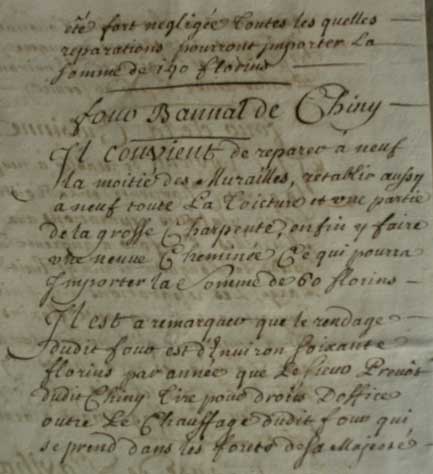 eté fort negligée Toutes les quelles
reparations pourront importer La
somme de 190 florins
four Bannal de Chiny
Il convient de reparer à neuf
la moitié des Murailles, retablir aussy
à neuf toute La Toicture et une partie
de la grosse Charpente, enfin y faire
une neuve Cheminée Ce qui pourra
Importer la Somme de 60 florins
Il est a remarquer que le rendage
dudit four est d'Environ soixante
florins par année que Le Sieur Prevôt
dudit Chiny Tire pour droits D'office
outre Le Chauffage dudit four qui
se prend dans les forets de sa Majesté